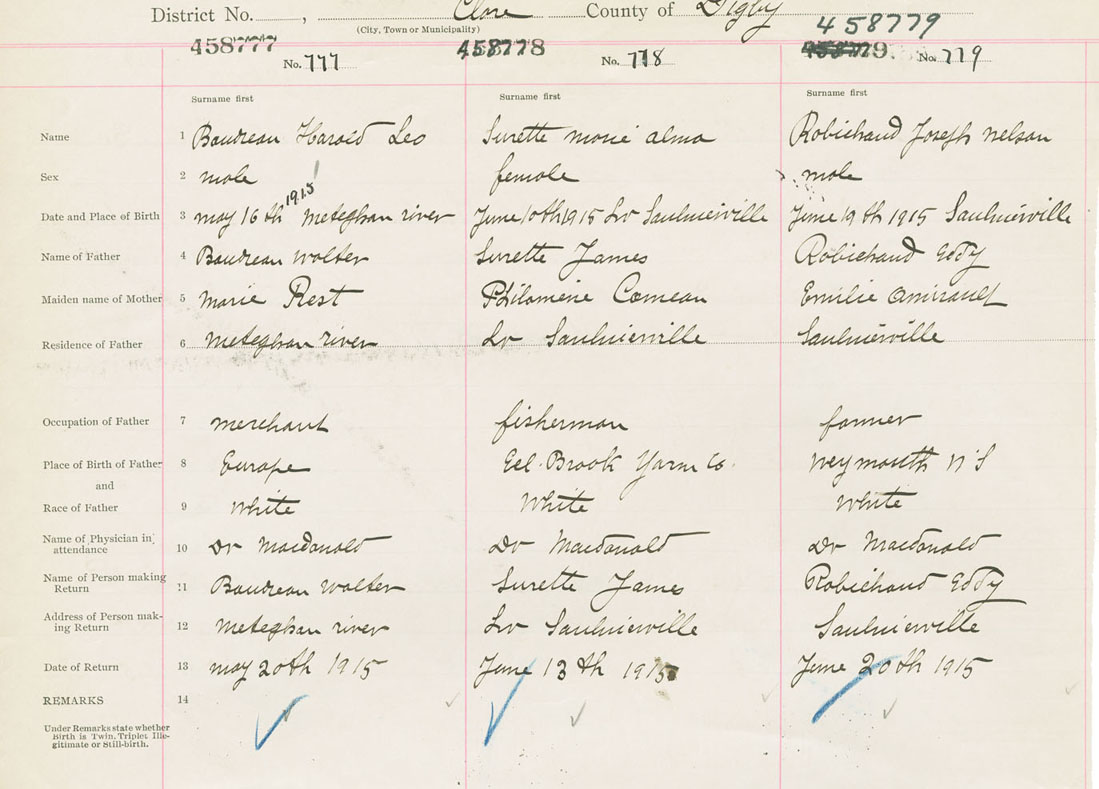 District No. , Clare County of Digby
(City, Town or Municipality)
458777 458778 458779 458779
No. 777 No. 778 No. 779
Surname first Surname first Surname first
Name 1 Baudreau Harold Leo Surette marie alma Robichaud Joseph nelson
Sex 2 male female male
Date and Place of Birth 3 may 16th 1915 meteghan river June 10th 1915 Lr Saulnierville June 19th 1915 Saulnierville
Name of Father 4 Baudreau walter Surette James Robichaud Eddy
Maiden name of Mother 5 marie Rest Philomene Comeau Emilie amirault
Residence of Father 6 meteghan river Lr Saulnierville Saulnierville
Occupation of Father 7 merchant fisherman farmer
Place of Birth of Father 8 Europe Eel Brook Yarm Co. weymouth N S
and
Race of Father 9 white White white
Name of Physician in attendance 10 Dr Macdonald Dr Macdonald Dr Macdonald
Name of Person making Return 11 Baudreau walter Surette James Robichaud Eddy
Address of Person mak-
ing Return 12 meteghan river Lr Saulnierville Saulnierville
Date of Return 13 may 20th 1915 June 13th 1915 June 20th 1915
REMARKS 14
Under Remarks state whether
Birth is Twin, Triplet Ille-
gitimate or Still-birth.